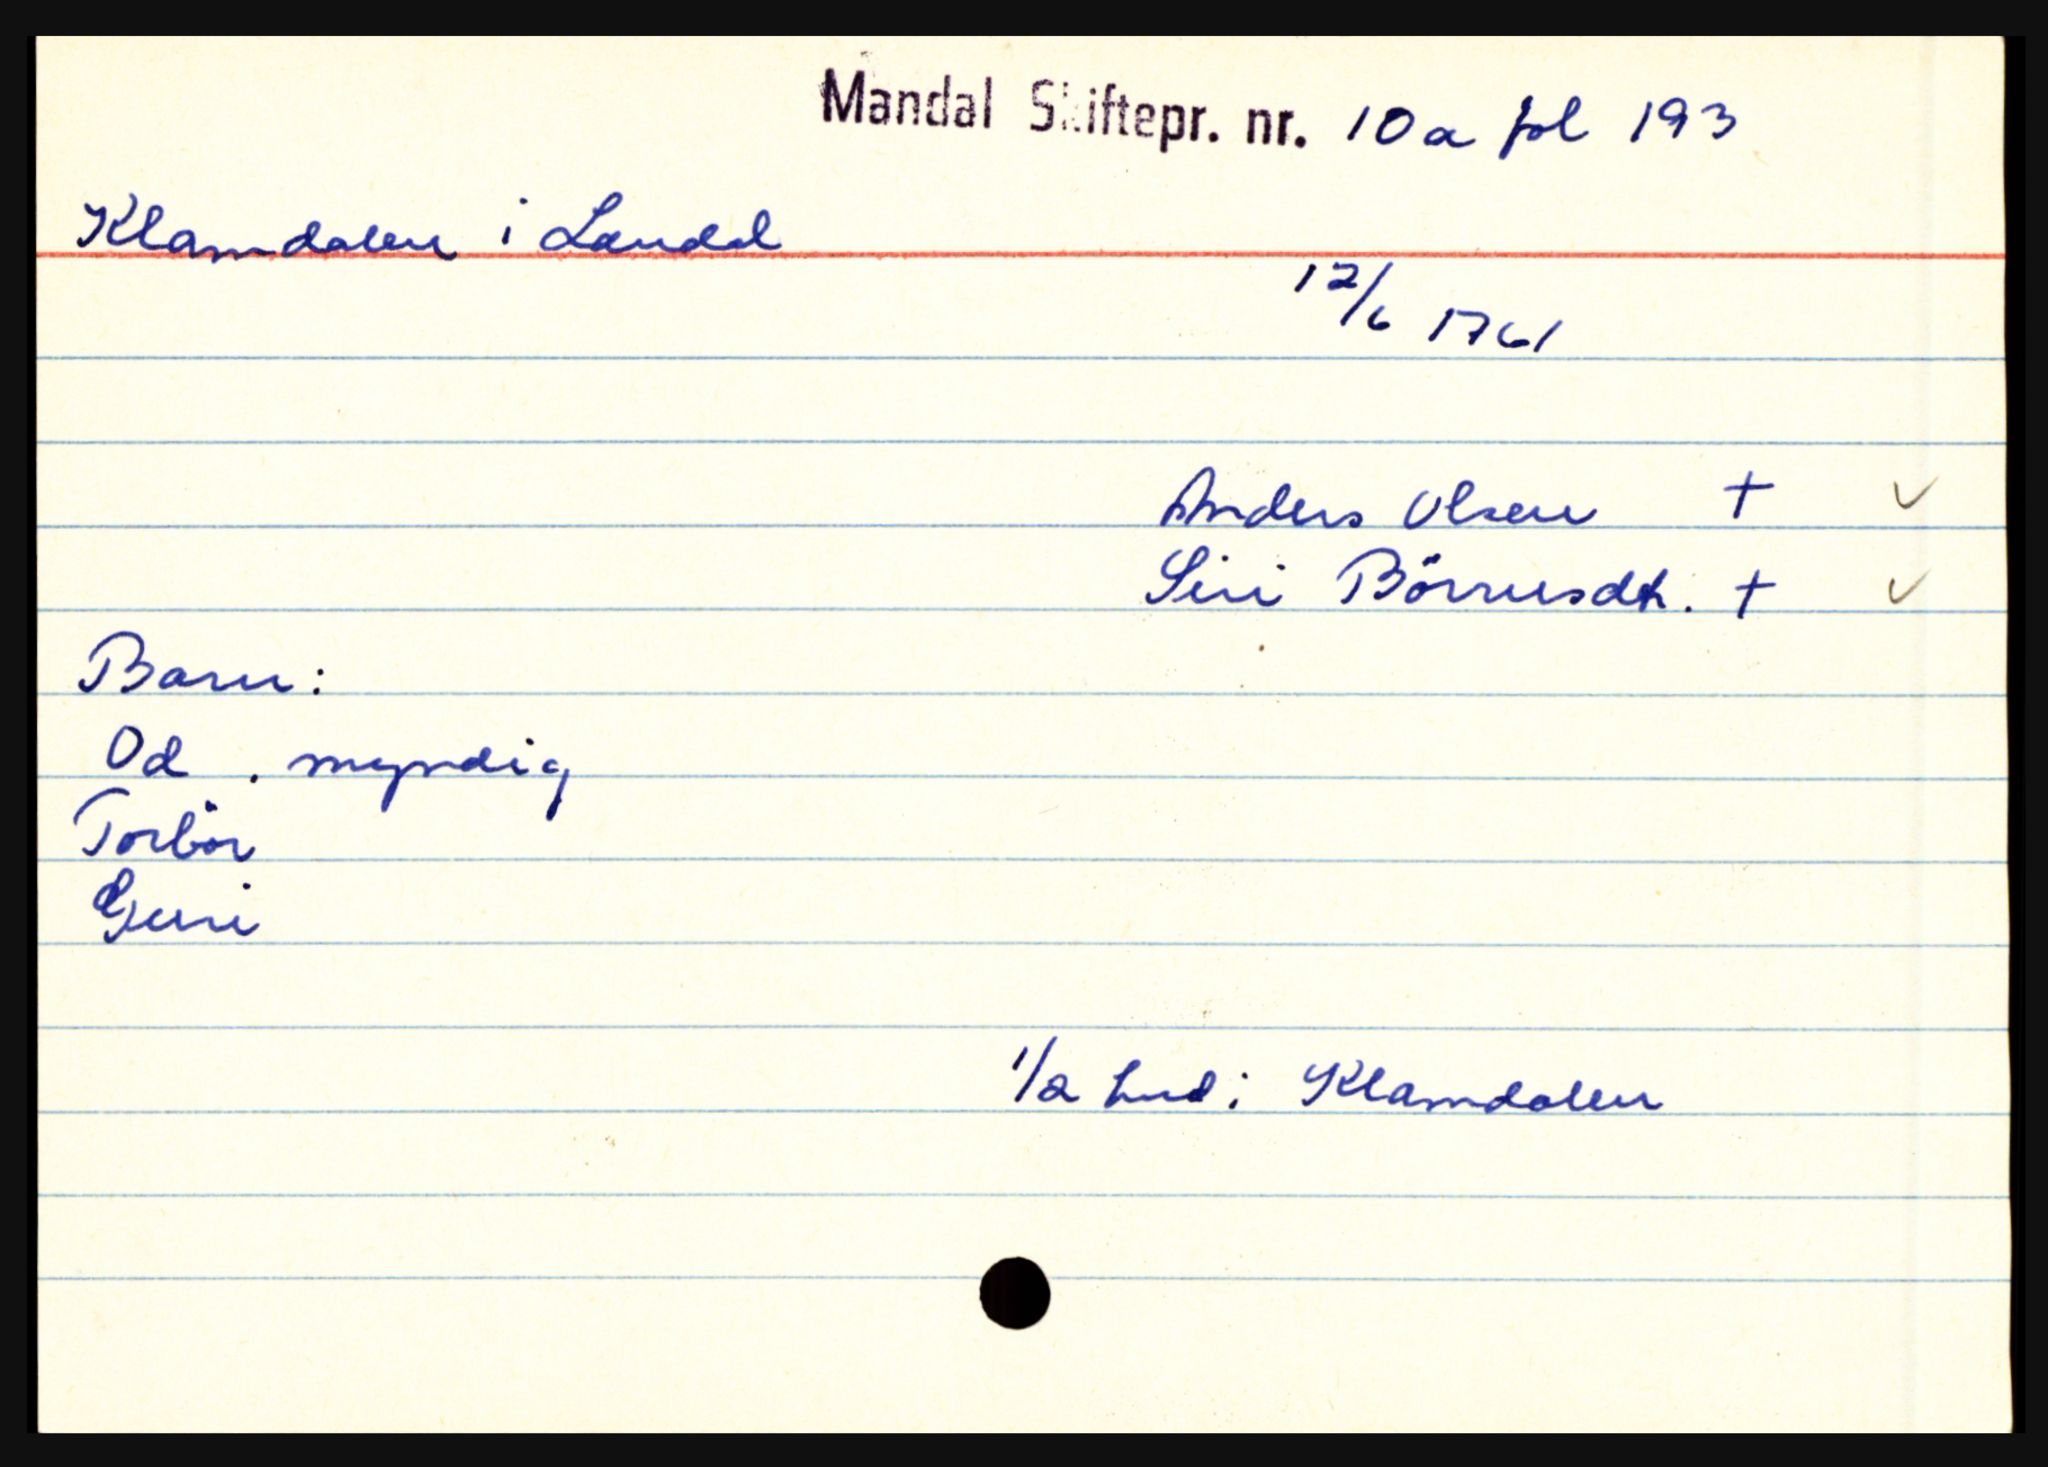 Mandal Skiftepr. nr. 10a fol 193
Klamdalen i Laudal
12/6 1761
Anders Olsen † ✓
Siri Börresdt. † ✓
Barn:
Od. myndig
Torbör
Guri
1/2 hud i Klamdalen